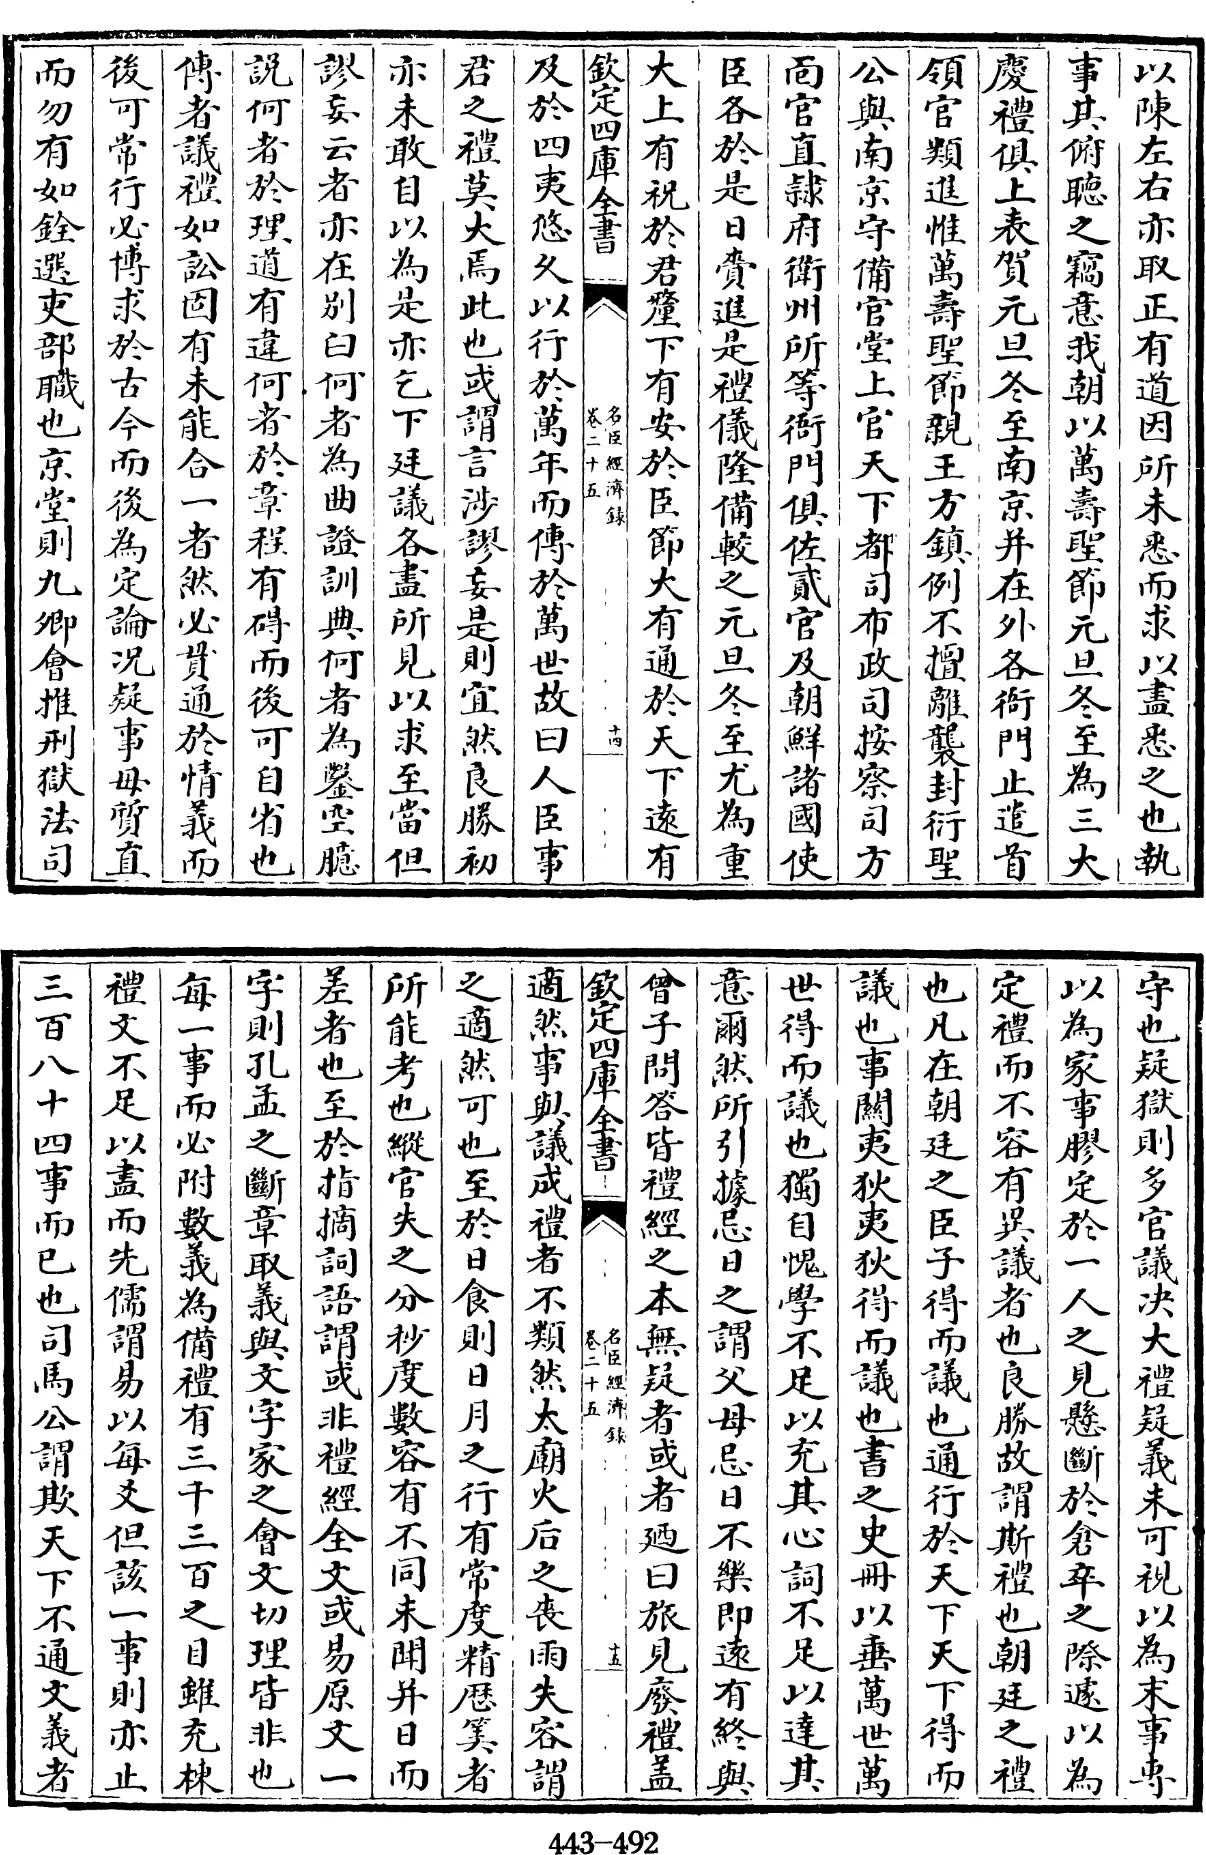 以陳左右亦取正有道因所未悉而求以盡悉之也執
事其俯聴之竊意我朝以萬壽聖節元旦冬至為三大
慶禮俱上表賀元旦冬至南京并在外各衙門止遣首
領官類進惟萬壽聖節親王方鎮例不擅離襲封衍聖
公與南京守備官堂上官天下都司布政司按察司方
面官直隷府衛州所等衙門俱佐貳官及朝鮮諸國使
臣各於是日賫進是禮儀隆備較之元旦冬至尤為重
大上有祝於君釐下有安於臣節大有通於天下遠有
欽定四庫全書
名臣經濟録
卷二十五
十四
及於四夷悠久以行於萬年而傳於萬世故曰人臣事
君之禮莫大焉此也或謂言涉謬妄是則宜然良勝初
亦未敢自以為是亦乞下廷議各盡所見以求至當但
謬妄云者亦在别白何者為曲證訓典何者為鑿空臆
説何者於理道有違何者於章程有碍而後可自省也
傳者議禮如訟固有未能合一者然必貫通於情義而
後可常行必博求於古今而後為定論况疑事毋質直
而勿有如銓選吏部職也京堂則九卿會推刑獄法司
守也疑獄則多官議決大禮疑義未可視以為末事専
以為家事膠定於一人之見懸斷於倉卒之際遽以為
定禮而不容有異議者也良勝故謂斯禮也朝廷之禮
也凡在朝廷之臣子得而議也通行於天下天下得而
議也事關夷狄夷狄得而議也書之史冊以垂萬世萬
世得而議也獨自愧學不足以充其心詞不足以達其
意爾然所引據忌日之謂父母忌日不樂即遠有終與
曾子問答皆禮經之本無疑者或者廼曰旅見廢禮盖
欽定四庫全書
名臣經濟録
卷二十五
十五
適然事與議成禮者不類然太廟火后之喪雨失容謂
之適然可也至於日食則日月之行有常度精歴筭者
所能考也縱官失之分秒度數容有不同未聞并日而
差者也至於指摘詞語謂或非禮經全文或易原文一
字則孔孟之斷章取義與文字家之會文切理皆非也
每一事而必附數義為備禮有三千三百之目雖充棟
禮文不足以盡而先儒謂易以每爻但該一事則亦止
三百八十四事而已也司馬公謂欺天下不通文義者
443-492